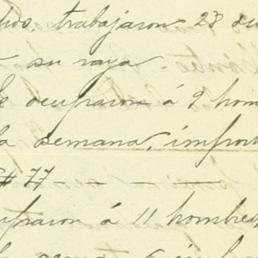 trabajaron 28
su raya
ocuparon á 9 hom
la semana, import
$ 77
cuparon á 11 hombres